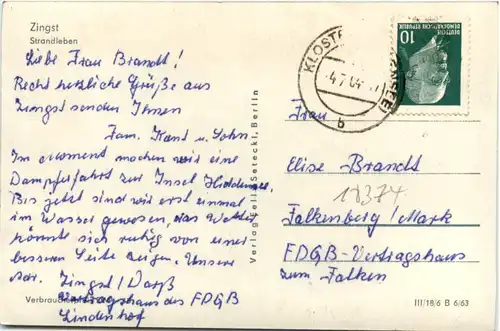 Zingst
Strandleben
Liebe Frau Brandt!
Recht herzliche Grüße aus
Zingst senden Ihnen
Fam. Kant u. Sohn.
Im Moment machen wir eine
Dampferfahrt zur Insel Hiddensee.
Bis jetzt sind wir erst einmal
im Wasser gewesen, das Wetter
könnte sich ruhig von einer
besseren Seite zeigen. Unsere
Adr. Zingst/Darß
Vertragshaus des FDGB
Lindenhof
Verlag Felix Setecki, Berlin
KLOSTER
b
DEUTSCHE
DEMOKRATISCHE REPUBLIK
10
Frau
Elise Brandt
18374
Falkenberg/Mark
FDGB-Vertragshaus
zum Falken
III/18/6 B 6/63